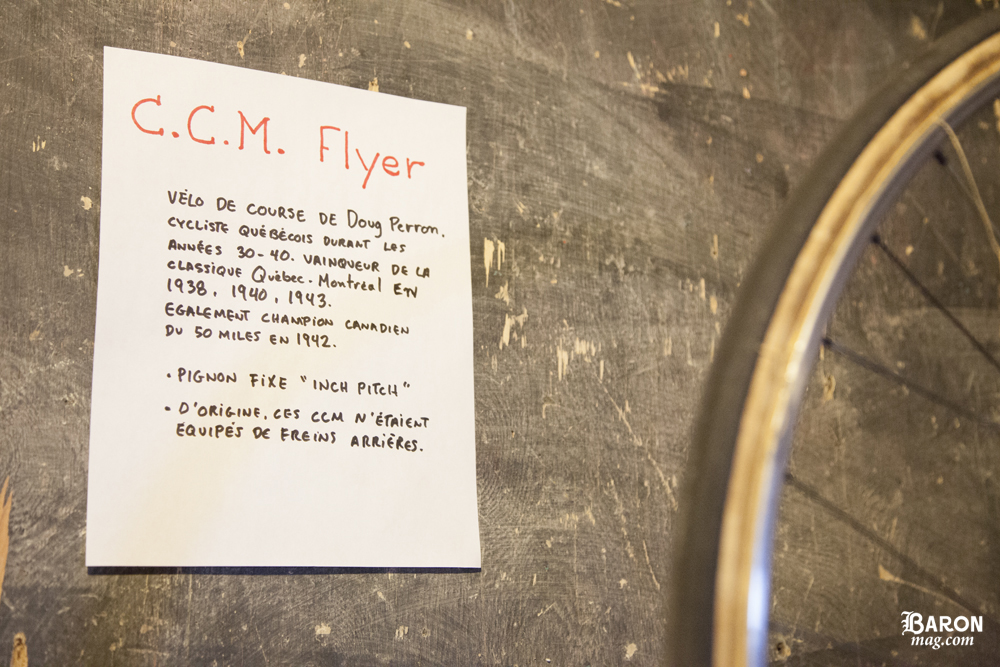 C.C.M. Flyer
VÉLO DE COURSE DE Doug Perron.
CYCLISTE QUÉBÉCOIS DURANT LES
ANNÉES 30-40. VAINQUEUR DE LA
CLASSIQUE Québec-Montréal EN
1938, 1940, 1943.
EGALEMENT CHAMPION CANADIEN
DU 50 MILES EN 1942.
• PIGNON FIXE "INCH PITCH"
• D'ORIGINE, CES CCM N'ÉTAIENT
EQUIPÉS DE FREINS ARRIÈRES.
BARON
mag.com